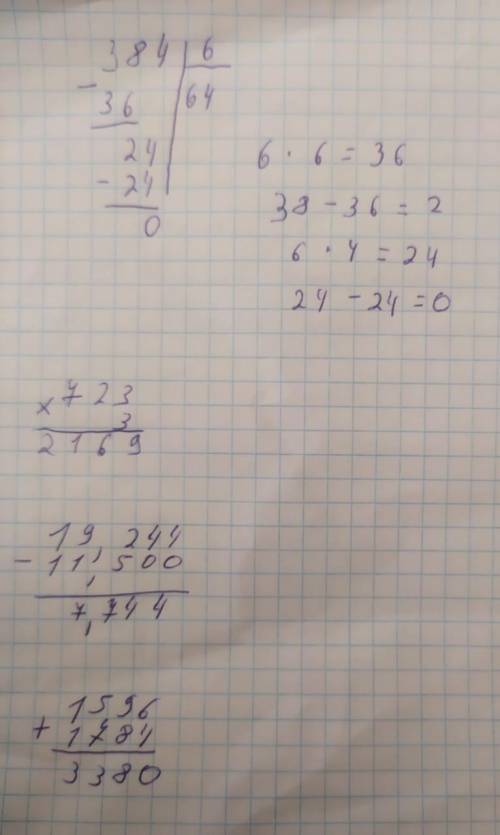 384 | 6
- 36 | 64
24
- 24
0
6 · 6 = 36
38 - 36 = 2
6 · 4 = 24
24 - 24 = 0
× 723
3
2169
19,244
- 11,500
7,744
1596
+ 1784
3380